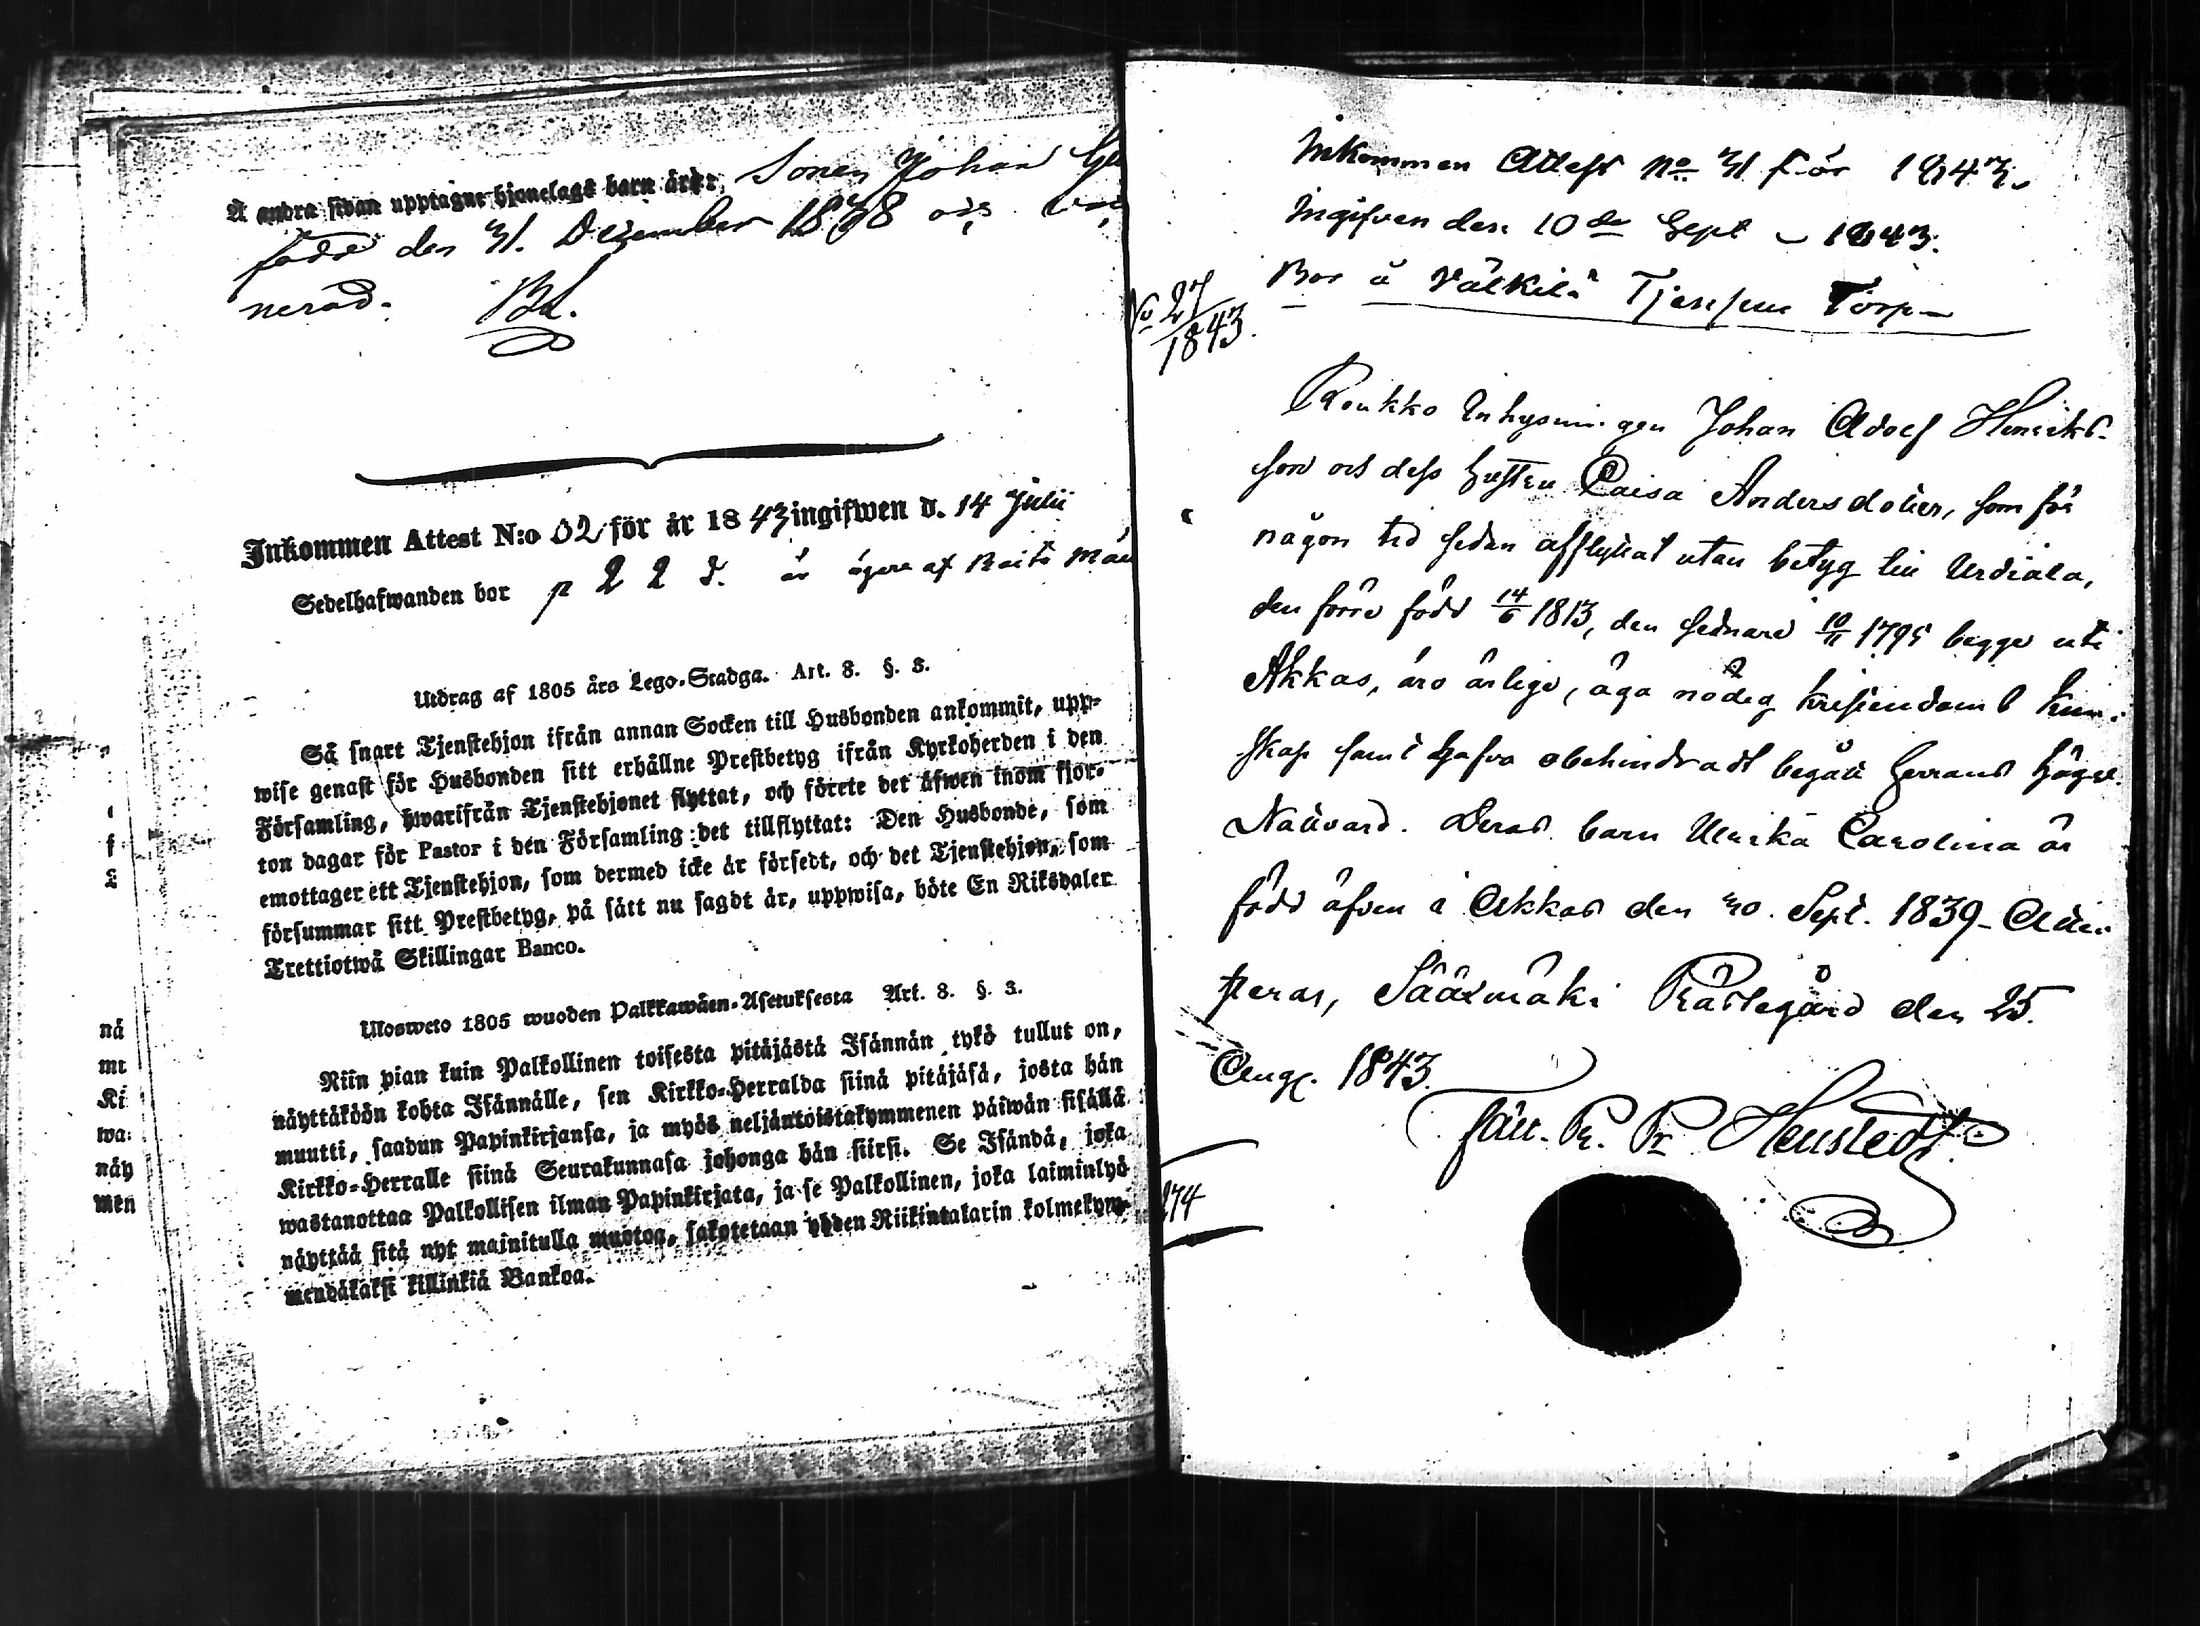 Å andra sidan upptagne hjonelags barn äro: Sonen Johan
född den 31. December 1838 och
nerad. BL.
Inkommen Attest N:o 32 för år 1843 ingifwen d. 14 Julii
Sedelhafwanden bor p 22 d. är ägare af
Utdrag af 1805 års Lego-Stadga. Art. 3. §. 3.
Så snart Tjenstehjon ifrån annan Socken till Husbonden ankommit, upp-
wise genast för Husbonden sitt erhållne Prestbetyg ifrån Kyrkoherden i den
Församling, hwarifrån Tjenstehjonet flyttat, och förete det äfwen inom fjor-
ton dagar för Pastor i den Församling det tillflyttat: Den Husbonde, som
emottager ett Tjenstehjon, som dermed icke är försedt, och det Tjenstehjon, som
försummar sitt Prestbetyg, på sätt nu sagdt är, uppwisa, böte En Riksdaler
Trettiotwå Skillingar Banco.
Ulosweto 1805 wuoden Palkkawäen-Asetuksesta Art. 3. §. 3.
Niin pian kuin Palkollinen toisesta pitäjästä Isännän tykö tullut on,
näyttäköön kohta Isännälle, sen Kirkko-Herralda siinä pitäjäsä, josta hän
muutti, saadun Papinkirjansa, ja myös neljäntoistakymmenen päiwän sisällä
Kirkko-Herralle siinä Seurakunnasa johonga hän siirsi. Se Isändä, joka
wastanottaa Palkollisen ilman Papinkirjata, ja se Palkollinen, joka laiminlyö
näyttää sitä nyt mainitulla muotoa, sakotetaan yhden Riikintalarin kolmekym-
mendäkaksi killinkiä Bankoa.
nä
mt
Ki
wa:
näy
men
Inkommen Attest No 31 för 1843.
Ingifven den 10de Sept 1843.
Bor å Välkilä Torp
No 27
1843.
Roukko Inhysingen Johan Adolf Henriks-
son och dess hustru Caisa Andersdotter, som för
någon tid sedan afflyttat utan betyg till Urdiala,
den förre född 14/6 1813, den sednare 10/11 1795 begge uti
Akkas, äro ärlige, äga nödig kristendoms kun-
skap samt hafva obehindradt begått Herrans högv.
Nattvard. Deras barn Ulrika Carolina är
född äfven i Akkas den 30. Sept. 1839. Attes-
teras, Sääxmäki Prästegård den 25.
Aug. 1843.
174